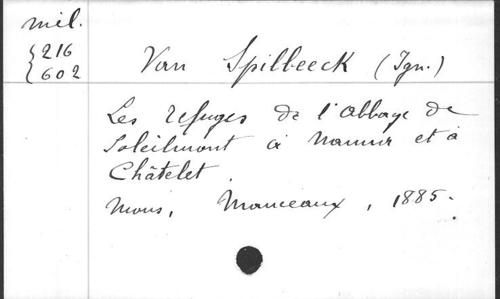 mél.
216
602
Van Spilbeeck (Ign.)
Les refuges de l'abbaye de
Soleilmont à Namur et à
Châtelet.
Mons, Manceaux, 1885.